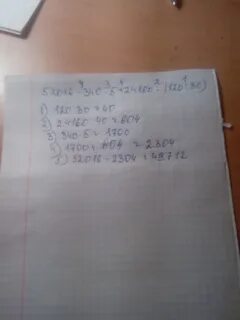 52016 - 340 · 5 + 24160 : (120 : 30)
1) 120 30 = 40
2) 24160 40 = 604
3) 340 · 5 = 1700
4) 1700 + 604 = 2304
5) 52016 - 2304 = 49712